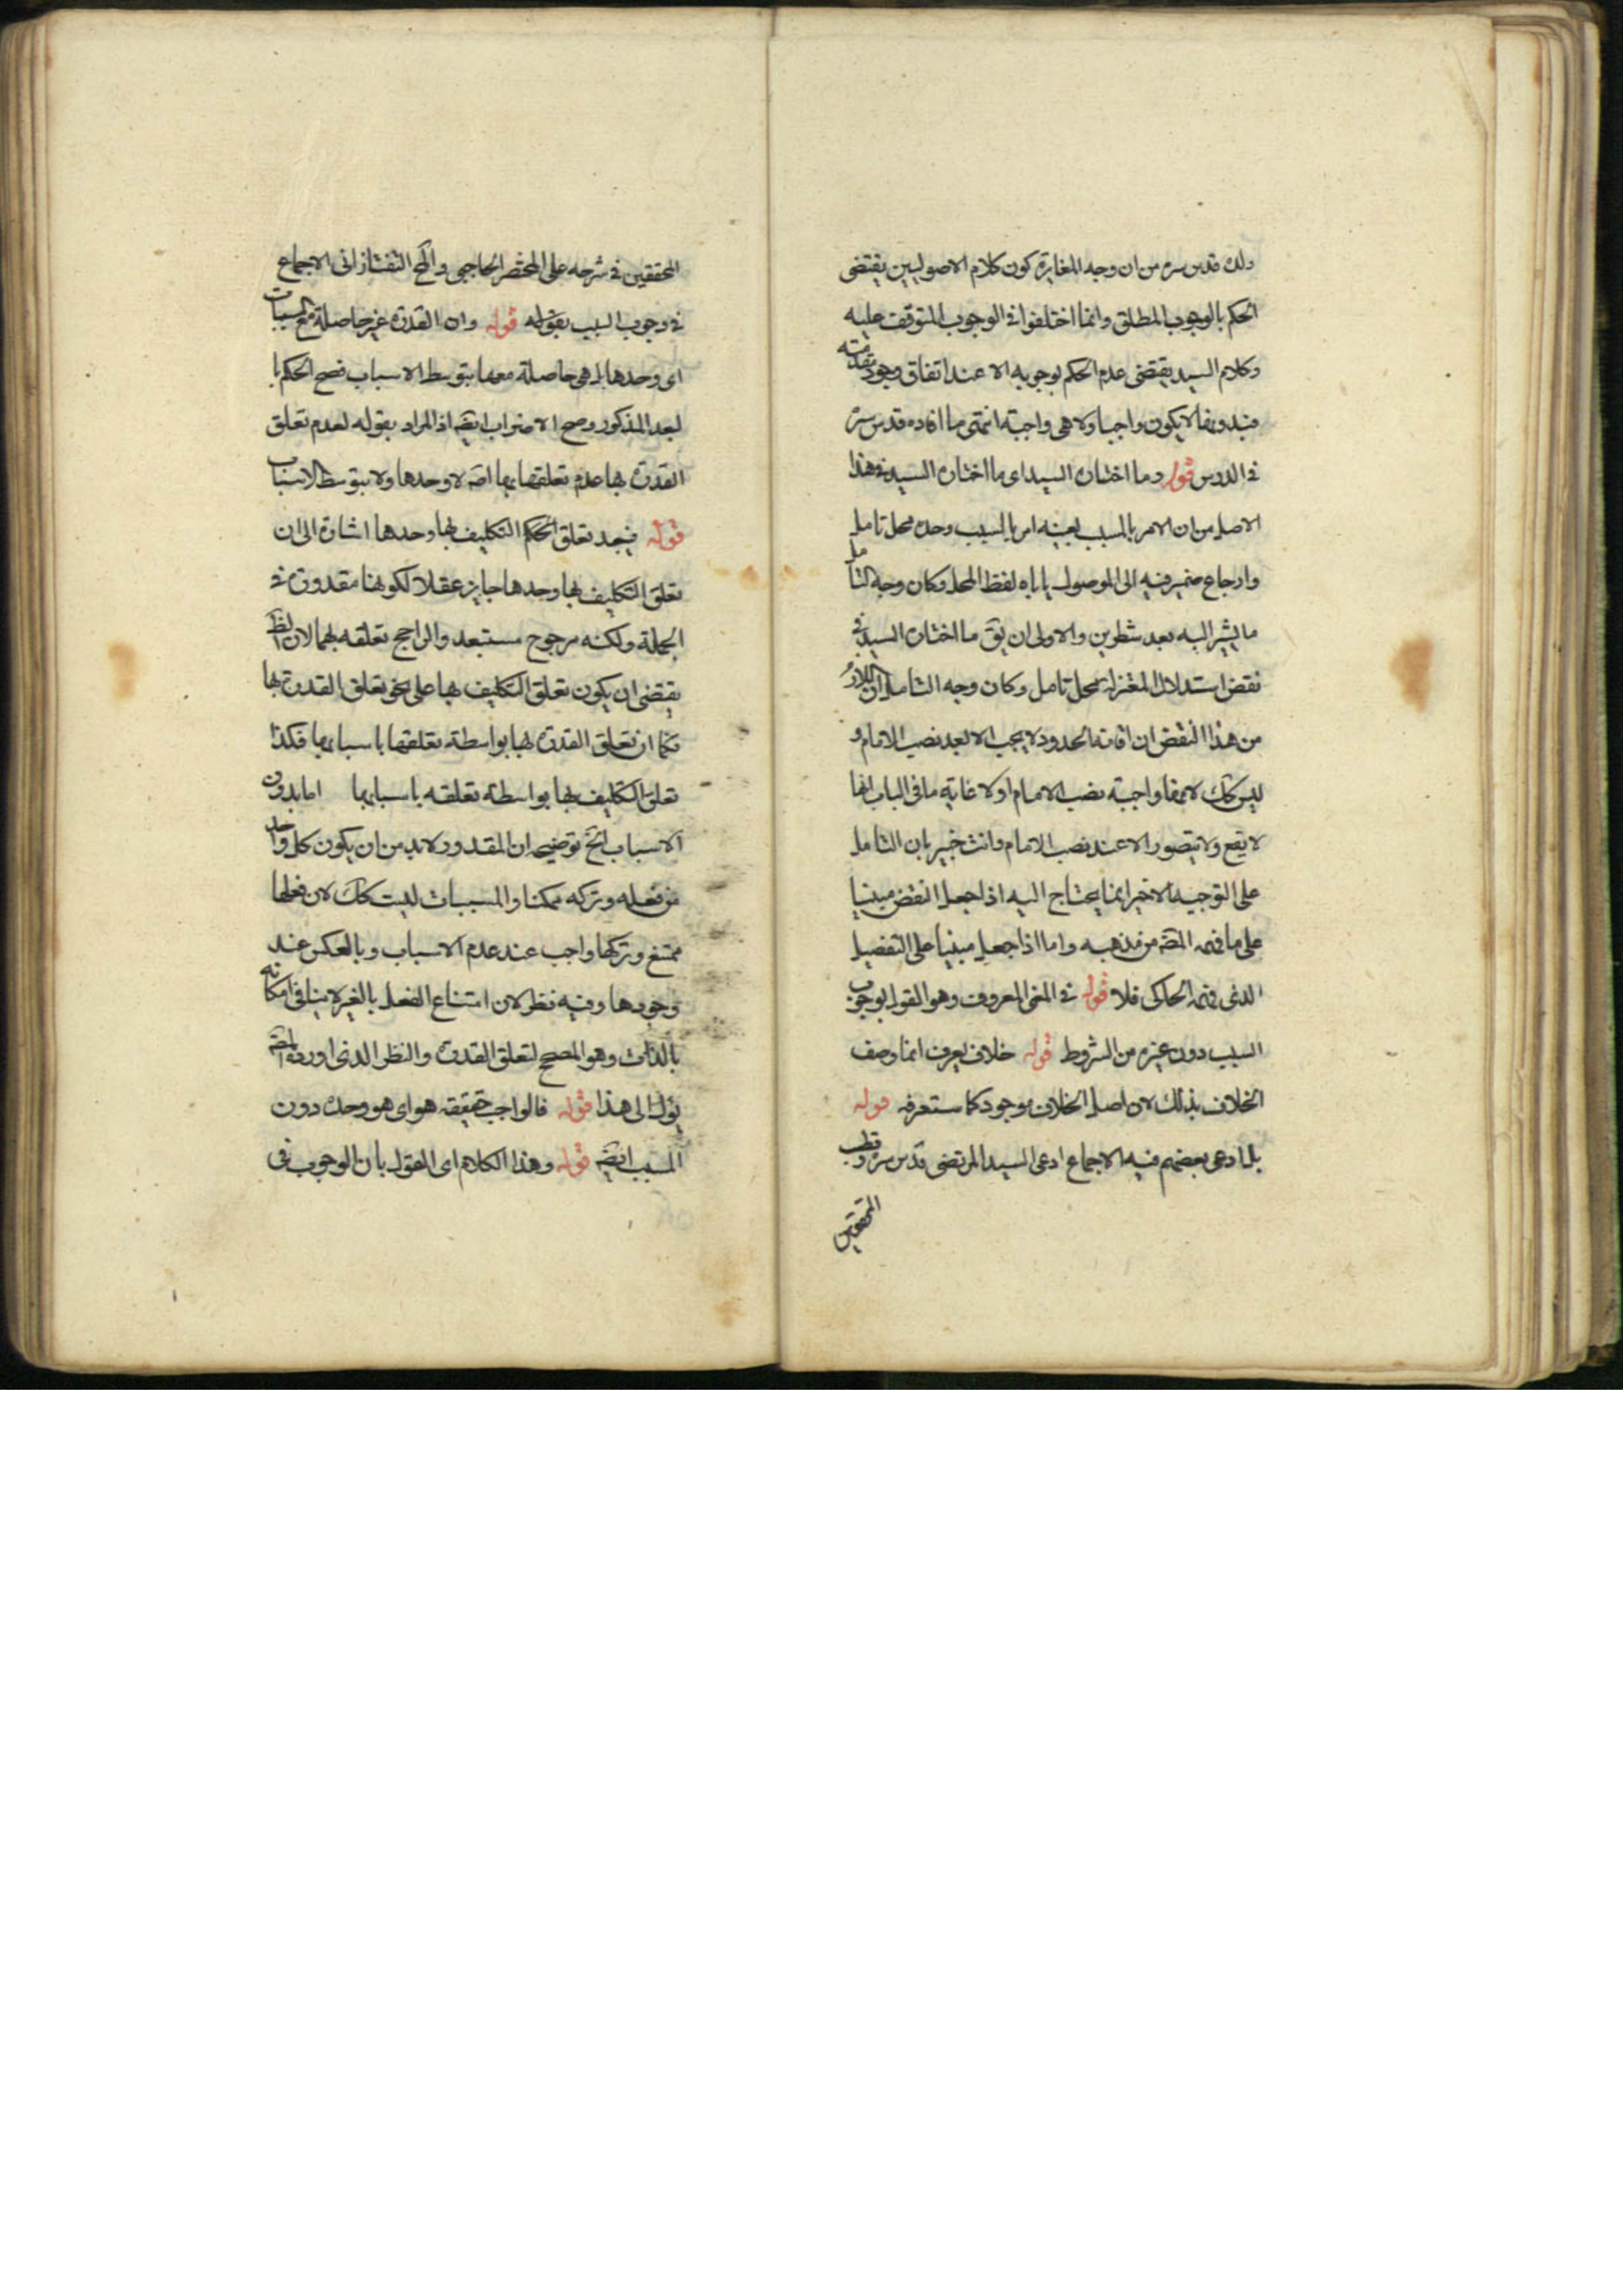 ولده قدس سره من ان وجه المغايرة كون كلام الاصوليين يقتضى
الحكم بالوجوب المطلق وانما اختلفوا فى الوجوب المتوقف عليه
وكلام السيد يقتضى عدم الحكم بوجوبه الا عند اتفاق وجود مقدمته
فبدونها لا يكون واجبا ولا هى واجبة انتهى ما افاده قدس سره
فى الدرس قوله وما اختاره السيد اى ما اختاره السيد فى هذا
الاصل من ان الامر بالمسبب بعينه امر بالسبب وحده محل تامل
وارجاع ضمير فيه الى الموصول ياباه لفظ المحل وكان وجه التامل
ما يشير اليه بعد سطرين والاولى ان يق ما اختاره السيد فى
نقض استدلال المعتزلة محل تامل وكان وجه التامل ان اللازم
من هذا النقض ان اقامة الحدود لا يجب الا بعد نصب الامام و
ليس كك لانها واجبة نصب الامام اولا غاية ما فى الباب انها
لا يقع ولا يتصور الا عند نصب الامام وانت خبير بان التامل
على التوجيه الاخير انما يحتاج اليه اذا جعل النقض مبنيا
على ما فهمه المصه من مذهبه واما اذا جعل مبنيا على التفصيل
الذى فهمه الحاكى فلا قوله فى المعنى المعروف وهو القول بوجوب
السبب دون غيره من الشروط قوله خلاف يعرف انما وصف
الخلاف بذلك لان اصل الخلاف موجود كما ستعرفه قوله
بل ادعى بعضهم فيه الاجماع ادعى السيد المرتضى قدس سره وقطب
المحققين
المحققين فى شرحه على المختصر الحاجبى والمح التفتازانى الاجماع
فى وجوب السبب بقوله قوله وان القدرة غير حاصلة مع المسببات
اى وحدها بل هى حاصلة معها بتوسط الاسباب فصح الحكم با
لبعد المذكور وصح الاضراب ايضه اذ المراد بقوله لعدم تعلق
القدرة بها عدم تعلقها بها اصه لا وحدها ولا بتوسط الاسباب
قوله فيبعد تعلق الحكم التكليف بها وحدها اشارة الى ان
تعلق التكليف بها وحدها جايز عقلا لكونها مقدورة فى
الجملة ولكنه مرجوح مستبعد والراجح تعلقه بهما لان الظ
يقتضى ان يكون تعلق التكليف بها على نحو تعلق القدرة بها
فكما ان تعلق القدرة بها بواسطة تعلقها باسبابها فكذا
تعلق التكليف بها بواسطة تعلقه باسبابها اما بدون
الاسباب الخ توضيحه ان المقدور لابد من ان يكون كل واحد
من فعله وتركه ممكنا والمسببات ليست كك لان فعلها
ممتنع وتركها واجب عند عدم الاسباب وبالعكس عند
وجودها وفيه نظر لان امتناع الفعل بالغير لا ينافى امكانه
بالذات وهو المصحح لتعلق القدرة والنظر الذى اورده المصه
يؤل الى هذا قوله فالواجب حقيقة هو اى هو وحده دون
المسبب ايضه قوله وهذا الكلام اى القول بان الوجوب فى